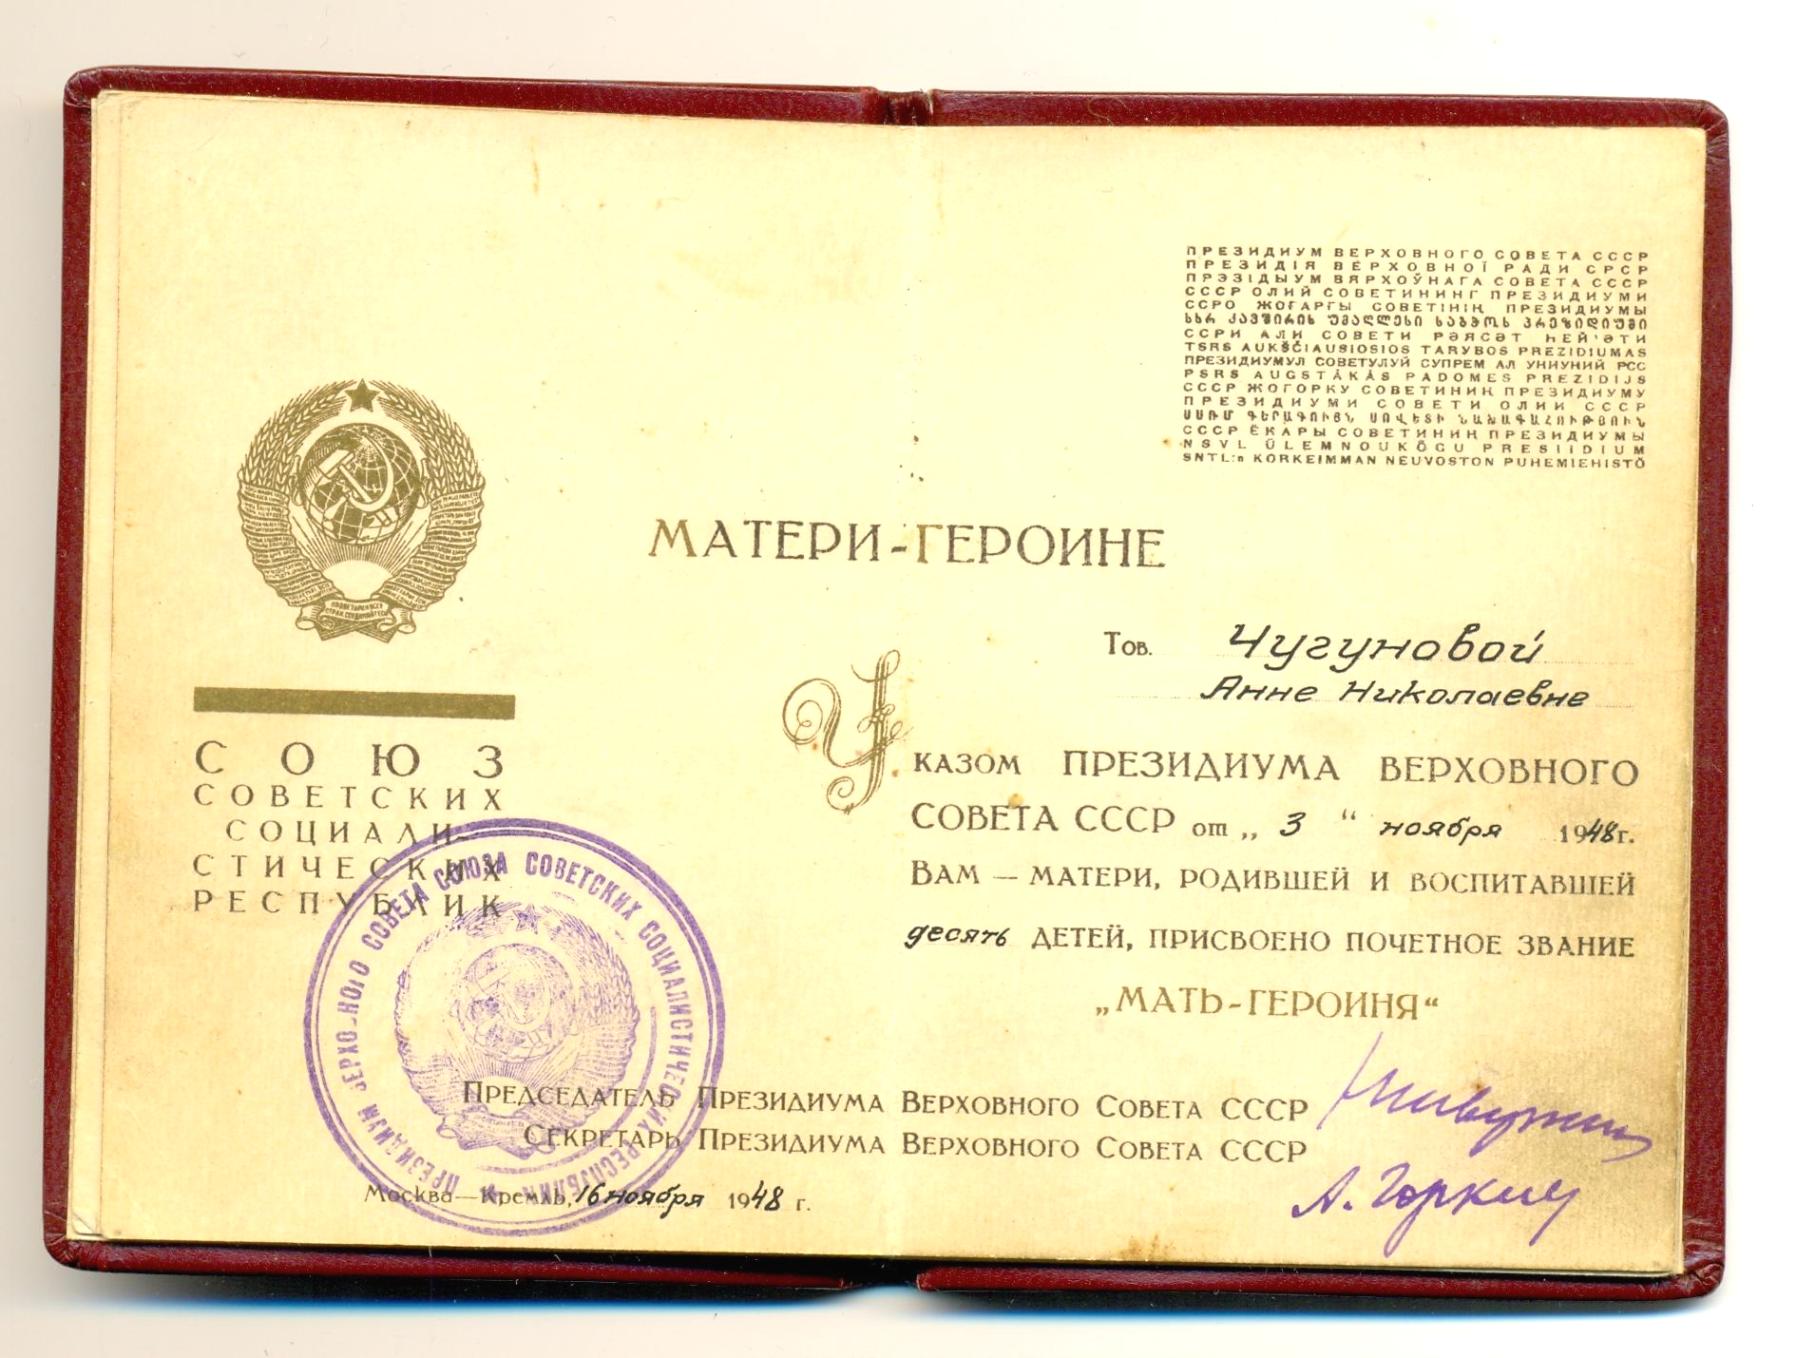 ПРЕЗИДИУМ ВЕРХОВНОГО СОВЕТА СССР
ПРЕЗИДІЯ ВЕРХОВНОЇ РАДИ СРСР
ПРЭЗІДЫУМ ВЯРХОЎНАГА СОВЕТА СССР
СССР ОЛИЙ СОВЕТИНИНГ ПРЕЗИДИУМИ
ССРО ЖОҒАРҒЫ СОВЕТІНІҢ ПРЕЗИДИУМЫ
ᲡᲡᲠ ᲙᲐᲕᲨᲘᲠᲘᲡ ᲣᲛᲐᲦᲚᲔᲡᲘ ᲡᲐᲑᲭᲝᲡ ᲞᲠᲔᲖᲘᲓᲘᲣᲛᲘ
ССРИ АЛИ СОВЕТИ РӘЯСӘТ ҺЕЙ'ӘТИ
TSRS AUKŠČIAUSIOSIOS TARYBOS PREZIDIUMAS
ПРЕЗИДИУМУЛ СОВЕТУЛУЙ СУПРЕМ АЛ УНИУНИЙ РСС
PSRS AUGSTĀKĀS PADOMES PREZIDIJS
СССР ЖОГОРКУ СОВЕТИНИН ПРЕЗИДИУМУ
ПРЕЗИДИУМИ СОВЕТИ ОЛИИ СССР
ՍՍՌՄ ԳԵՐԱԳՈՒՅՆ ՍՈՎԵՏԻ ՆԱԽԱԳԱՀՈՒԹՅՈՒՆ
СССР ЁКАРЫ СОВЕТИНИҢ ПРЕЗИДИУМЫ
NSVL ÜLEMNOUKOGU PRESIIDIUM
SNTL:n KORKEIMMAN NEUVOSTON PUHEMIEHISTÖ
МАТЕРИ-ГЕРОИНЕ
Тов. Чугуновой
Анне Николаевне
Указом ПРЕЗИДИУМА ВЕРХОВНОГО
СОВЕТА СССР от „ 3 “ ноября 1948 г.
Вам — матери, родившей и воспитавшей
десять детей, присвоено почетное звание
„МАТЬ-ГЕРОИНЯ“
СОЮЗ
СОВЕТСКИХ
СОЦИАЛИ-
СТИЧЕСКИХ
РЕСПУБЛИК
ПРЕЗИДИУМ ВЕРХОВНОГО СОВЕТА СОЮЗА СОВЕТСКИХ СОЦИАЛИСТИЧЕСКИХ РЕСПУБЛИК
Председатель Президиума Верховного Совета СССР
Секретарь Президиума Верховного Совета СССР
А. Горкин
Москва—Кремль, 16 ноября 1948 г.